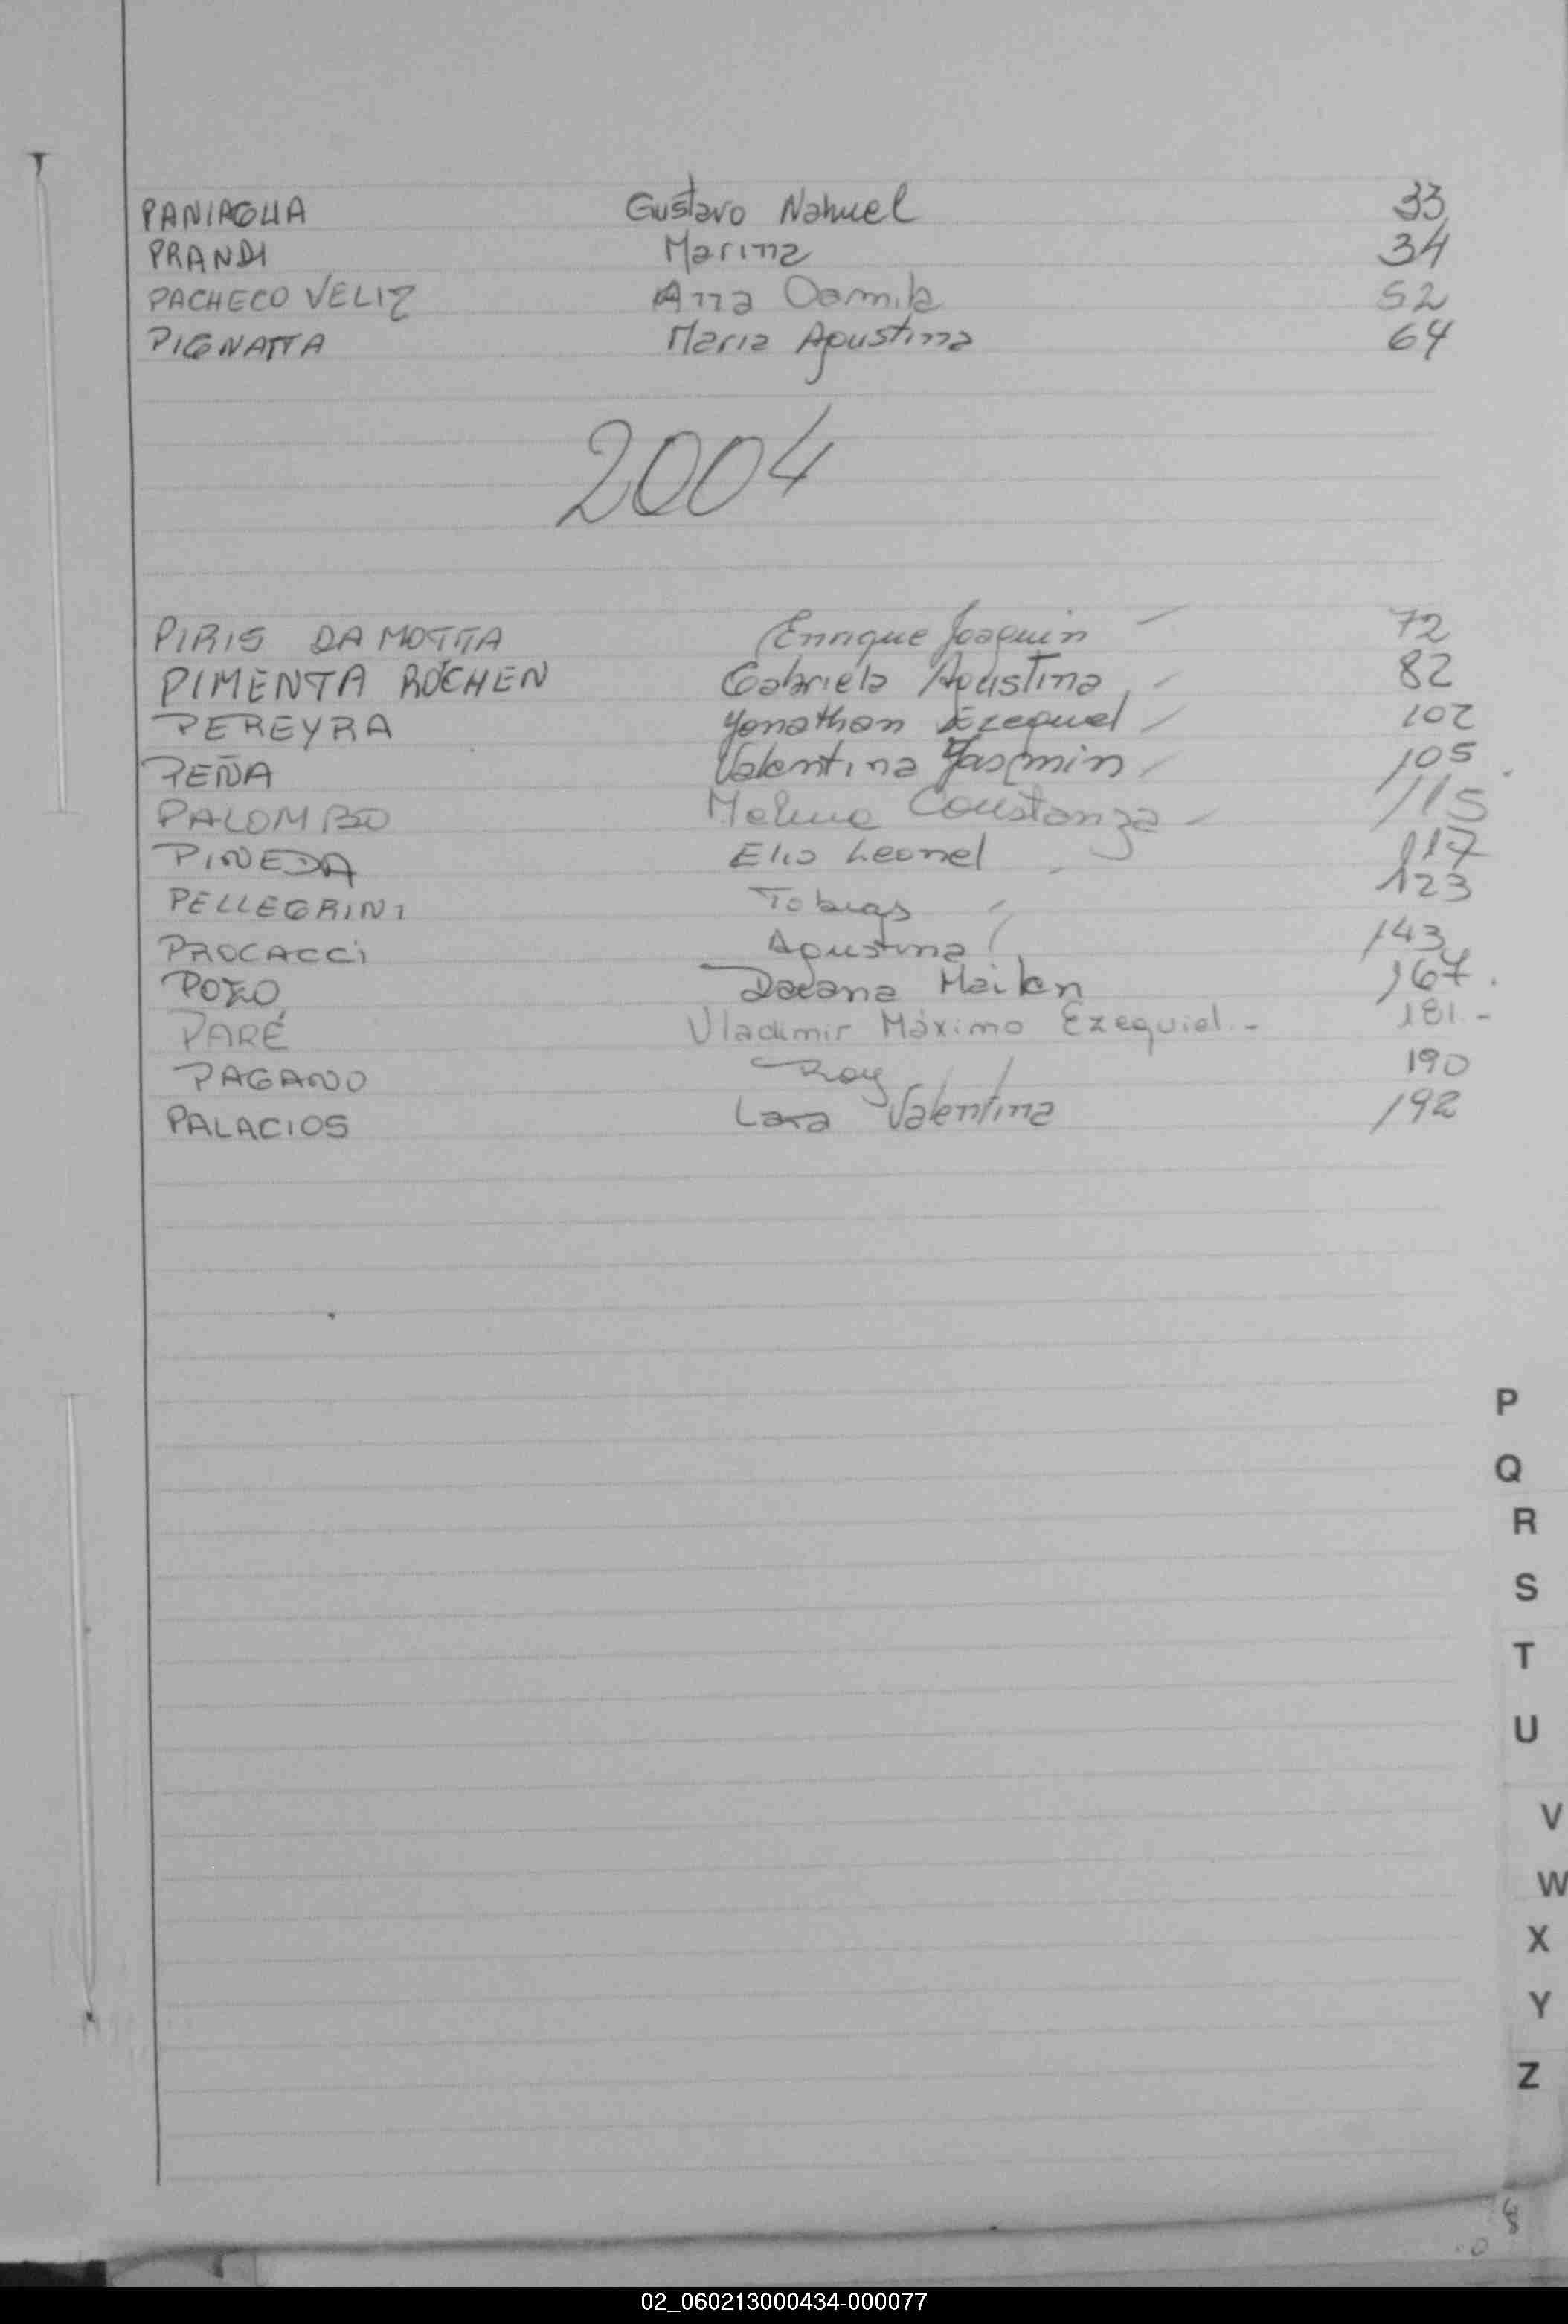 PANIAGUA Gustavo Nahuel 33
PRANDI Marina 34
PACHECO VELIZ Ana Camila 52
PIGNATTA Maria Agustina 64
2004
PIRIS DA MOTTA Enrique Joaquin 72
PIMENTA ROCHEN Gabriela Agustina 82
PEREYRA Yonathan Ezequiel 102
PEÑA Valentina Yasmin 105
PALOMBO Melina Constanza 115
PINEDA Elio Leonel 117
PELLEGRINI Tobias 123
PROCACCI Agustina 143
POZO Daiana Mailen 167.
PARÉ Vladimir Máximo Ezequiel.- 181.-
PAGANO Roy 190
PALACIOS Lara Valentina 192
P
Q
R
S
T
U
V
W
X
Y
Z
02_060213000434-000077